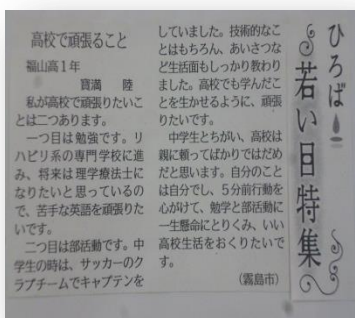 ひろば
若い目特集
高校で頑張ること
福山高1年
寳満　陸
私が高校で頑張りたいこ
とは二つあります。
一つ目は勉強です。リ
ハビリ系の専門学校に進
み、将来は理学療法士に
なりたいと思っているの
で、苦手な英語を頑張りた
いです。
二つ目は部活動です。中
学生の時は、サッカーのク
ラブチームでキャプテンを
していました。技術的なこ
とはもちろん、あいさつな
ど生活面もしっかり教わり
ました。高校でも学んだこ
とを生かせるように、頑張
りたいです。
中学生とちがい、高校は
親に頼ってばかりではだめ
だと思います。自分のこと
は自分でし、5分前行動を
心がけて、勉学と部活動に
一生懸命にとりくみ、いい
高校生活をおくりたいで
す。
（霧島市）